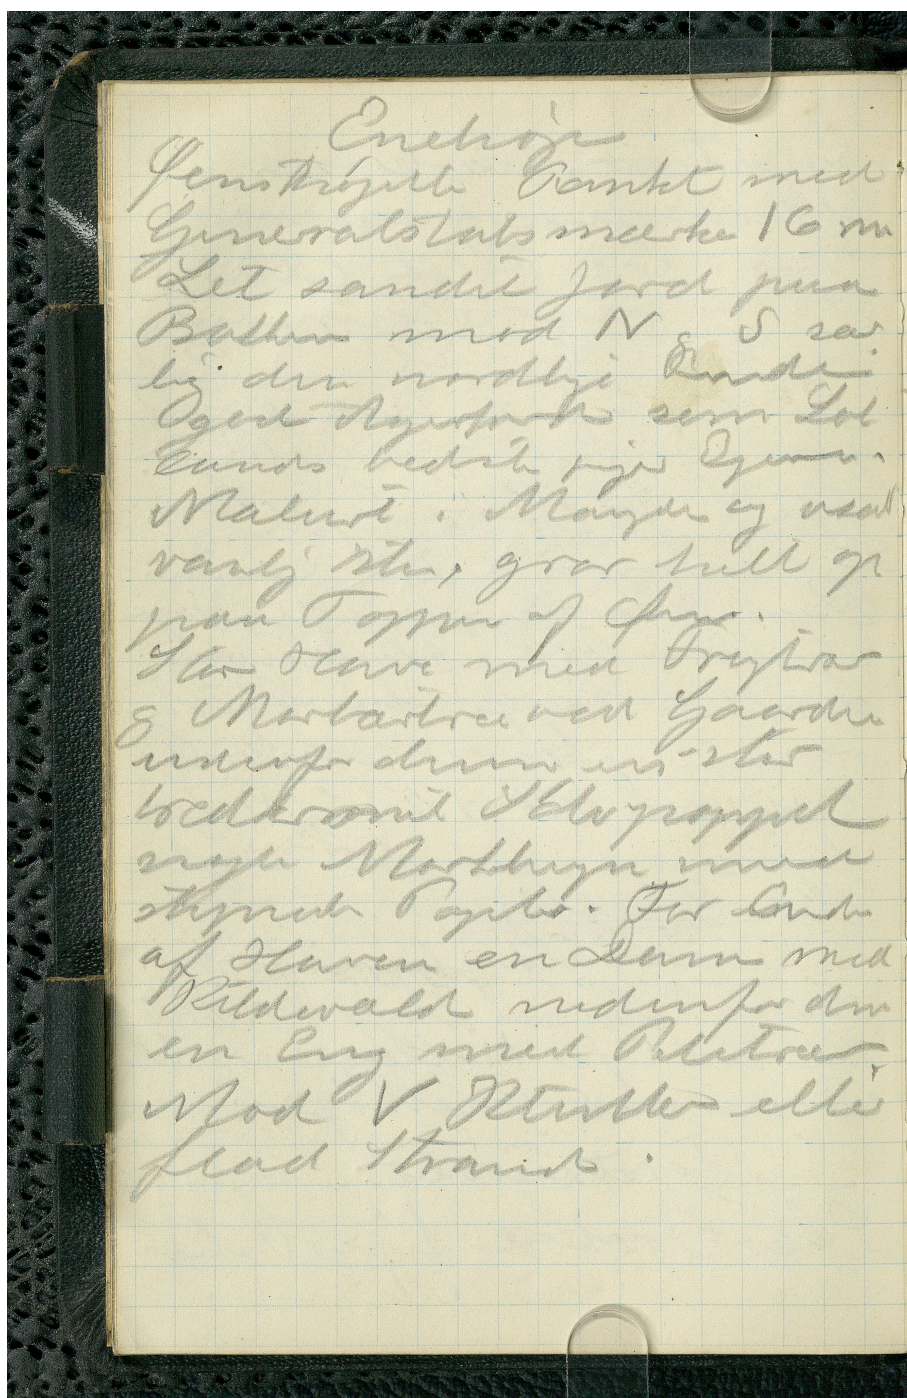 Enehøje
Øens Højeste Punkt med
Generalstabsmærke 16 m
Let sandet Jord paa
Bakken mod N & S sær
lig den nordlige Ende
god Agerjord som Lol
lands bedste siger Ejeren.
Malurt i Mængde og usæd
vanlig stor, gror helt op
paa Toppen af Øen.
Stor Have med Frugttræer
& Morbærtræ ved Gaarden
udenfor denne en stor
bredkronet Sølvpoppel
nogle med
stynede Popler. For Enden
af Haven en Dam med
Kildevæld nedenfor den
en Eng med Piletræer
Mod V Klinter eller
flad Strand.